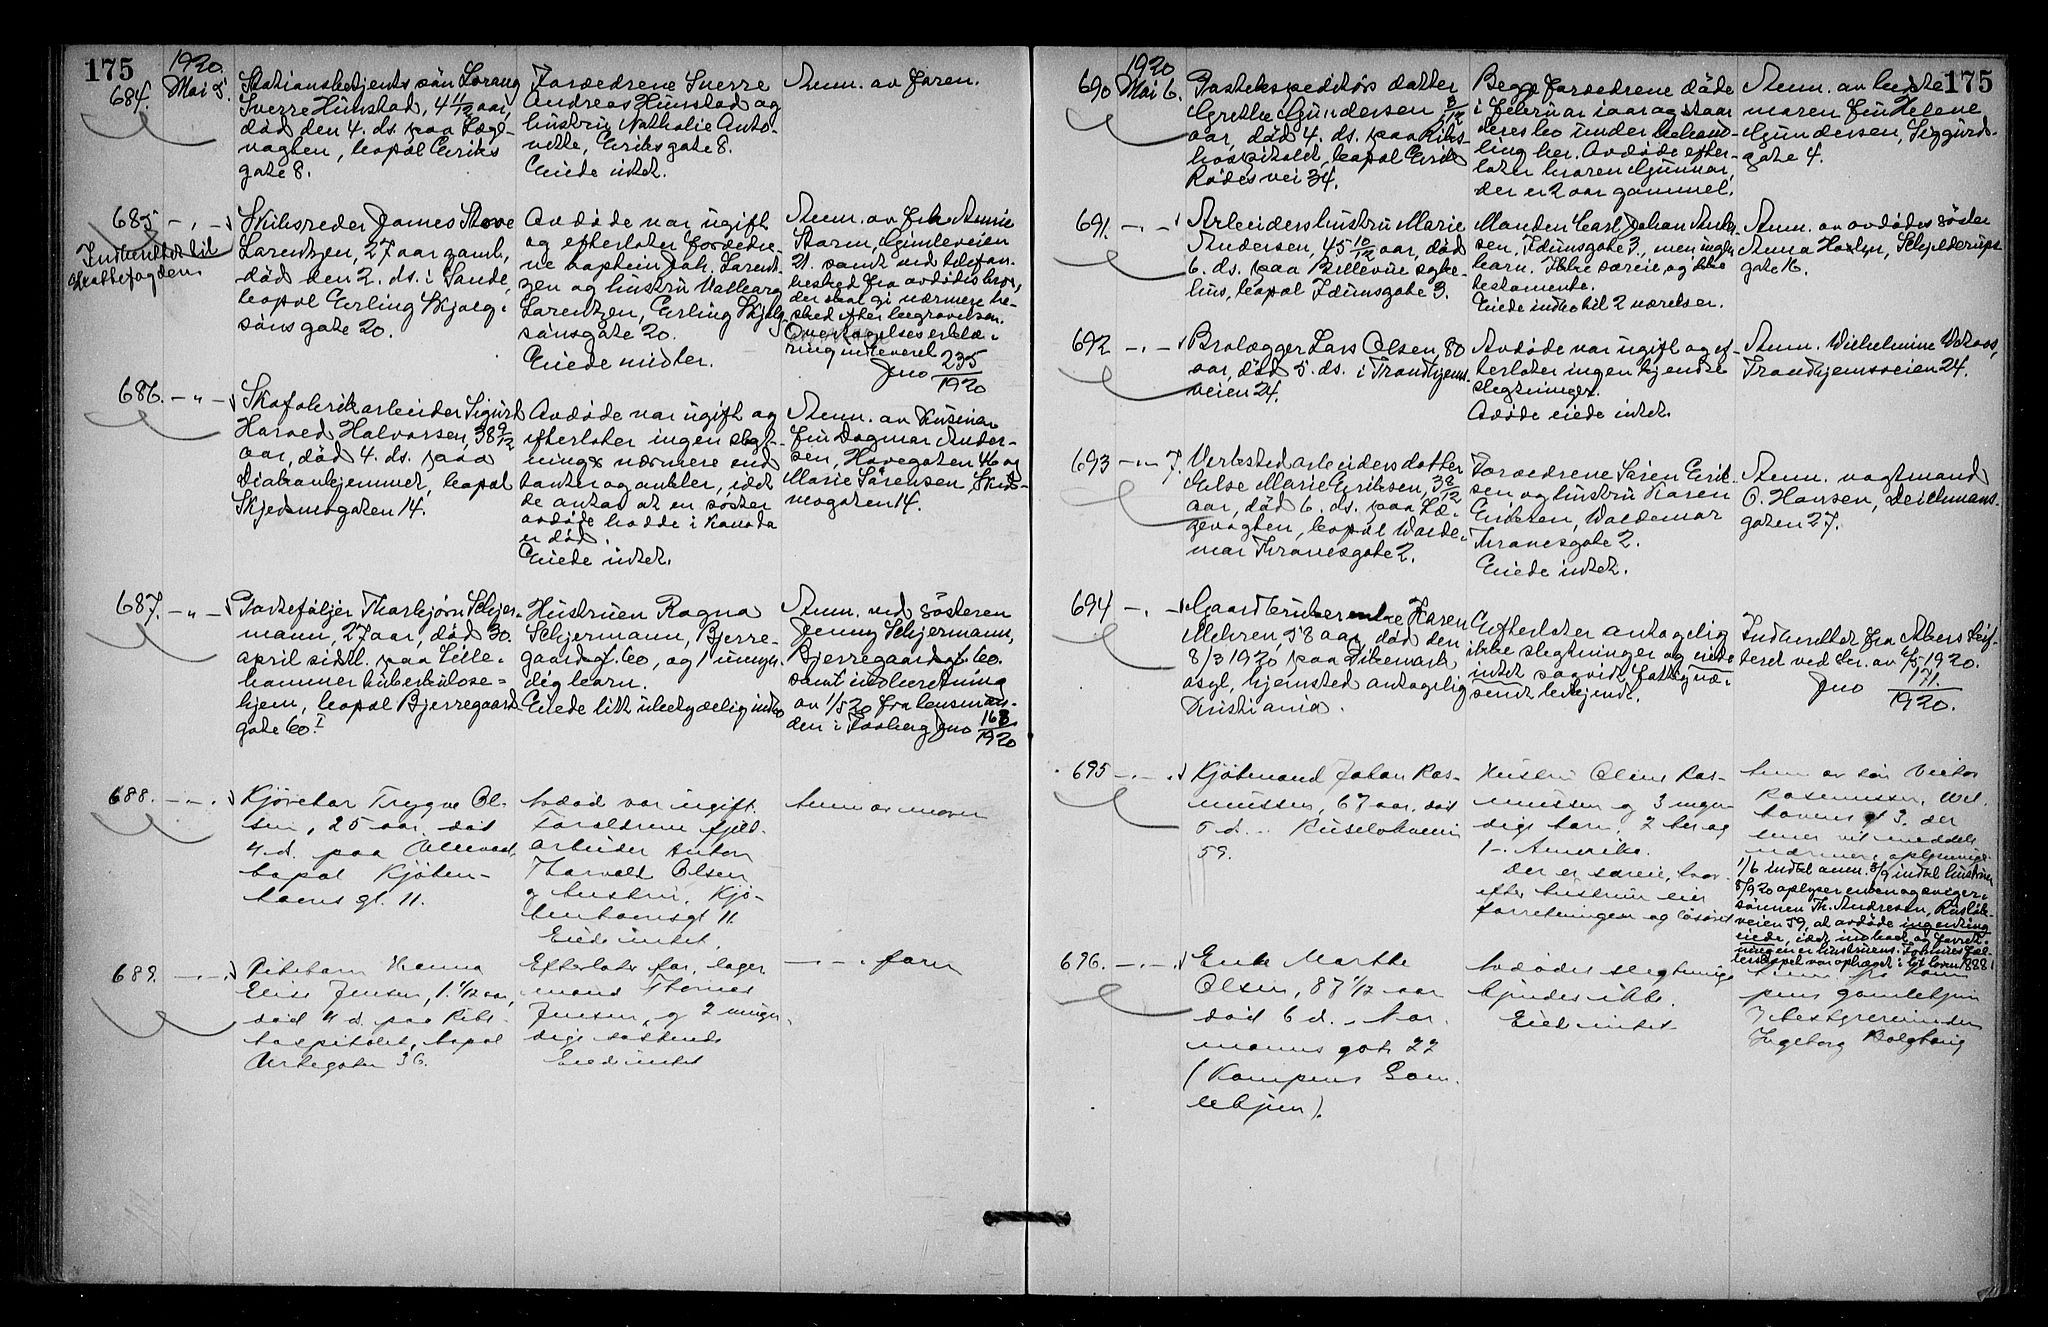 175
1920.
684. Mai 5. Stationsbetjents søn Lorang
Sverre Hünstad, 4 4/12 aar,
død den 4. ds. paa Læge-
vagten, bopæl Eriks
gate 8.
Forældrene Sverre
Andreas Hünstad og
hustru Nathalie Anto-
nette, Eriksgate 8.
Eiede intet.
Anm. av faren.
685 - " - 5
Indberettet til
skattefogden
Skibsreder James Stove
Lorentzen, 27 aar gaml,
død den 2. ds. i Sande,
bopæl Erling Skjalg-
sønsgate 20.
Avdøde var ugift
og efterlater forældre-
ne kaptein Joh. Lorent-
zen og hustru Valborg
Lorentzen, Erling Skjalg-
sønsgate 20.
Eiede midler.
Anm. av frk Annie
Storm, Gimleveien
21. samt ved telefon-
besked fra avdødes bror,
der skal gi nærmere be-
sked efter begravelsen.
Overtagelseserklæ-
ring indleveret
Jno 235/1920
686. - " - 5
Skofabrikarbeider Sigurd
Harald Halvorsen, 38 9/12
aar, død 4. ds. paa
Diakonhjemmet, bopæl
Skjedsmogaten 14.
Avdøde var ugift og
efterlater ingen slegt-
ninge nærmere end
tanter og onkler, idet
de antar at en søster
avdøde hadde i Kanada
er død.
Eiede intet.
Anm. av kusinen
fru Dagmar Ander-
sen, Hovegaten 46 og
Marie Sørensen, Skeds-
mogaten 14.
687. - " - 5
Porteføljer Thorbjørn Schjer-
mann, 27 aar, død 30.
april sidstl. paa Lille-
hammer tuberkulose-
hjem, bopæl Bjerregaards-
gate 60. I
Hustruen Ragna
Schjermann, Bjerre-
gaardsg. 60, og 1 umyn-
dig barn.
Eiede litt ubetydelig indbo
Anm. ved søsteren
Jenny Schjermann,
Bjerregaardsg. 60.
samt indberetning
av 1/5 20 fra lensman-
den i Faaberg Jno 168/1920
688. - " - 5
Kjørekar Trygve Ol-
sen, 25 aar, død
4. d. paa Ullevaal,
bopæl Kjøben-
havns gt. 11.
Avdød var ugift.
Forældrene fjeld-
arbeider Anton
Thorvald Olsen
og hustru, Kjø-
benhavnsgt 11.
Eiede intet.
Anm av moren
689. - " - 5
Pikebarn Hanna
Elise Jensen, 1 4/12 aar,
død 4 d. paa Riks-
hospitalet, bopæl
Urtegaten 36.
Efterlater far, lager
mand Thomas
Jensen, og 2 umyn-
dige søskende
Eiede intet
- " - faren
175
1920
690 Mai 6.
Postekspeditørs datter
Grethe Gundersen 8/12
aar, død 4. ds. paa Riks-
hospitalet, bopæl Erik
Rødes vei 34.
Begge forældrene døde
i februar iaar og staar
deres bo under behand-
ling her. Avdøde efter-
later broren Gunnar,
der er 2 aar gammel.
Anm. av bedste
moren fru Helene
Gundersen, Siggurds-
gate 4.
691. - " - 5
Arbeiders hustru Marie
Andersen, 45 10/12 aar, død
6. ds. paa Bellevue syke-
hus, bopæl Idunsgate 3.
Manden Carl Johan Ander-
sen, Idunsgate 3, men ingen
barn. Ikke særeie og ikke
testamente.
Eiede indbo til 2 værelser.
Anm. av avdødes søster
Anna Hoxlyn, Schjelderups-
gate 16.
692 - " - 5
Brolægger Lars Olsen, 80
aar, død 5. ds. i Trondhjems-
veien 24.
Avdøde var ugift og ef-
terlater ingen kjendte
slegtninger.
Avdøde eiede intet.
Anm. Wilhelmine
Trondhjemsveien 24.
693 - " - 7.
Verkstedarbeiders datter
Else Marie Eriksen, 3 8/12
aar, død 6. ds. paa Læ-
gevagten, bopæl Walde-
mar Thranesgate 2.
Forældrene Søren Erik-
sen og hustru Karen
Eriksen, Waldemar
Thranesgate 2.
Eiede intet.
Anm. vagtmand
O. Hansen, Deichmans-
gaten 27.
694 - " - 5
Gaardbrukerenke Karen
Mehren, 58 aar, død den
8/3 1920 paa Dikemark
asyl, hjemsted antagelig
Kristiania.
Efterlater antagelig
ikke slegtninger og eiede
intet saavidt fattigvæ-
senet bekjendt.
Indberettet fra Akers skif-
teret ved skr. av 6/5 1920.
Jno 171./1920.
695 - " - 5
Kjøbmand Johan Ras-
mussen, 67 aar, død
5 d. i Ruseløkveien
59.
Hustru Oline Ras-
mussen og 3 myn-
dige barn, 2 her og
1 i Amerika.
Der er særeie, hvor-
efter hustruen eier
forretningen og løsøret
Anm av søn Victor
Rasmussen, Wel-
havens gt 3. der
senere vil meddele
nærmere oplysninger.
1/6 indtel anm. 8/9 indtel hustruen
8/9 20 oplyser enken og sviger-
sønnen Th. Andresen, Ruseløk-
veien 59, at avdøde ingenting
eiede, idet indboet og forret-
ningen er hustruens.
696. - " - 5
Enke Marthe
Olsen, 87 1/12 aar
død 6 d. i Nor-
manns gate 22
(Kampens Gam-
lehjem).
Avdødes slegtninge
kjendes ikke.
Eiede intet
Anm fra Kam
pens gamlehjem
v bestyrerinden
Ingeborg